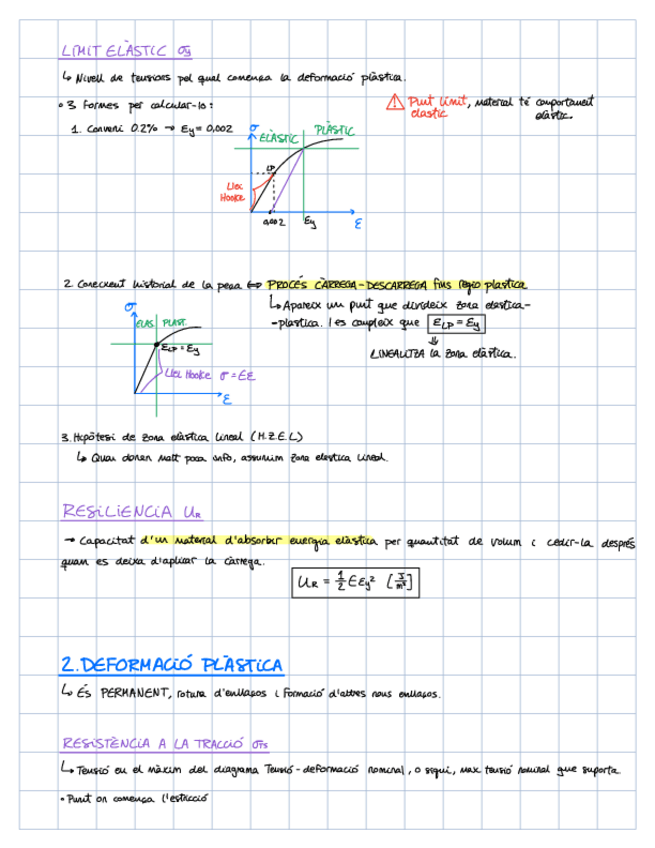 LÍMIT ELÀSTIC σy
↳ Nivell de tensions pel qual comença la deformació plàstica.
• 3 formes per calcular-lo:
⚠ Punt límit elastic, material té comportament elàstic.
1. Conveni 0.2% → Ey = 0,002
σ
ELÀSTIC
PLÀSTIC
LP
Llei Hooke
0,002
Ey
ε
2. Coneixent historial de la peça ⇔ PROCÉS CÀRREGA-DESCARREGA fins regio plastica
↳ Apareix un punt que divideix zona elastica-
-plastica. I es compleix que ELP = Ey
⇓
LINEALITZA la zona elàstica.
σ
ELAS.
PLAST.
ELP = Ey
Llei Hooke σ = EE
ε
3. Hipòtesi de zona elàstica lineal (H.Z.E.L)
↳ Quan donen molt poca info, assumim zona elastica lineal.
RESiLiENCiA UR
→ Capacitat d'un material d'absorbir energia elàstica per quantitat de volum i cedir-la després
quan es deixa d'aplicar la càrrega.
UR = 1/2 E Ey² [J/m³]
2. DEFORMACIÓ PLÀSTICA
↳ És PERMANENT, rotura d'enllaços i formació d'altres nous enllaços.
RESISTÈNCIA A LA TRACCIÓ σTS
↳ Tensió en el màxim del diagrama Tensió-deformació nominal, o sigui, max tensió nominal que suporta.
• Punt on comença l'estricció